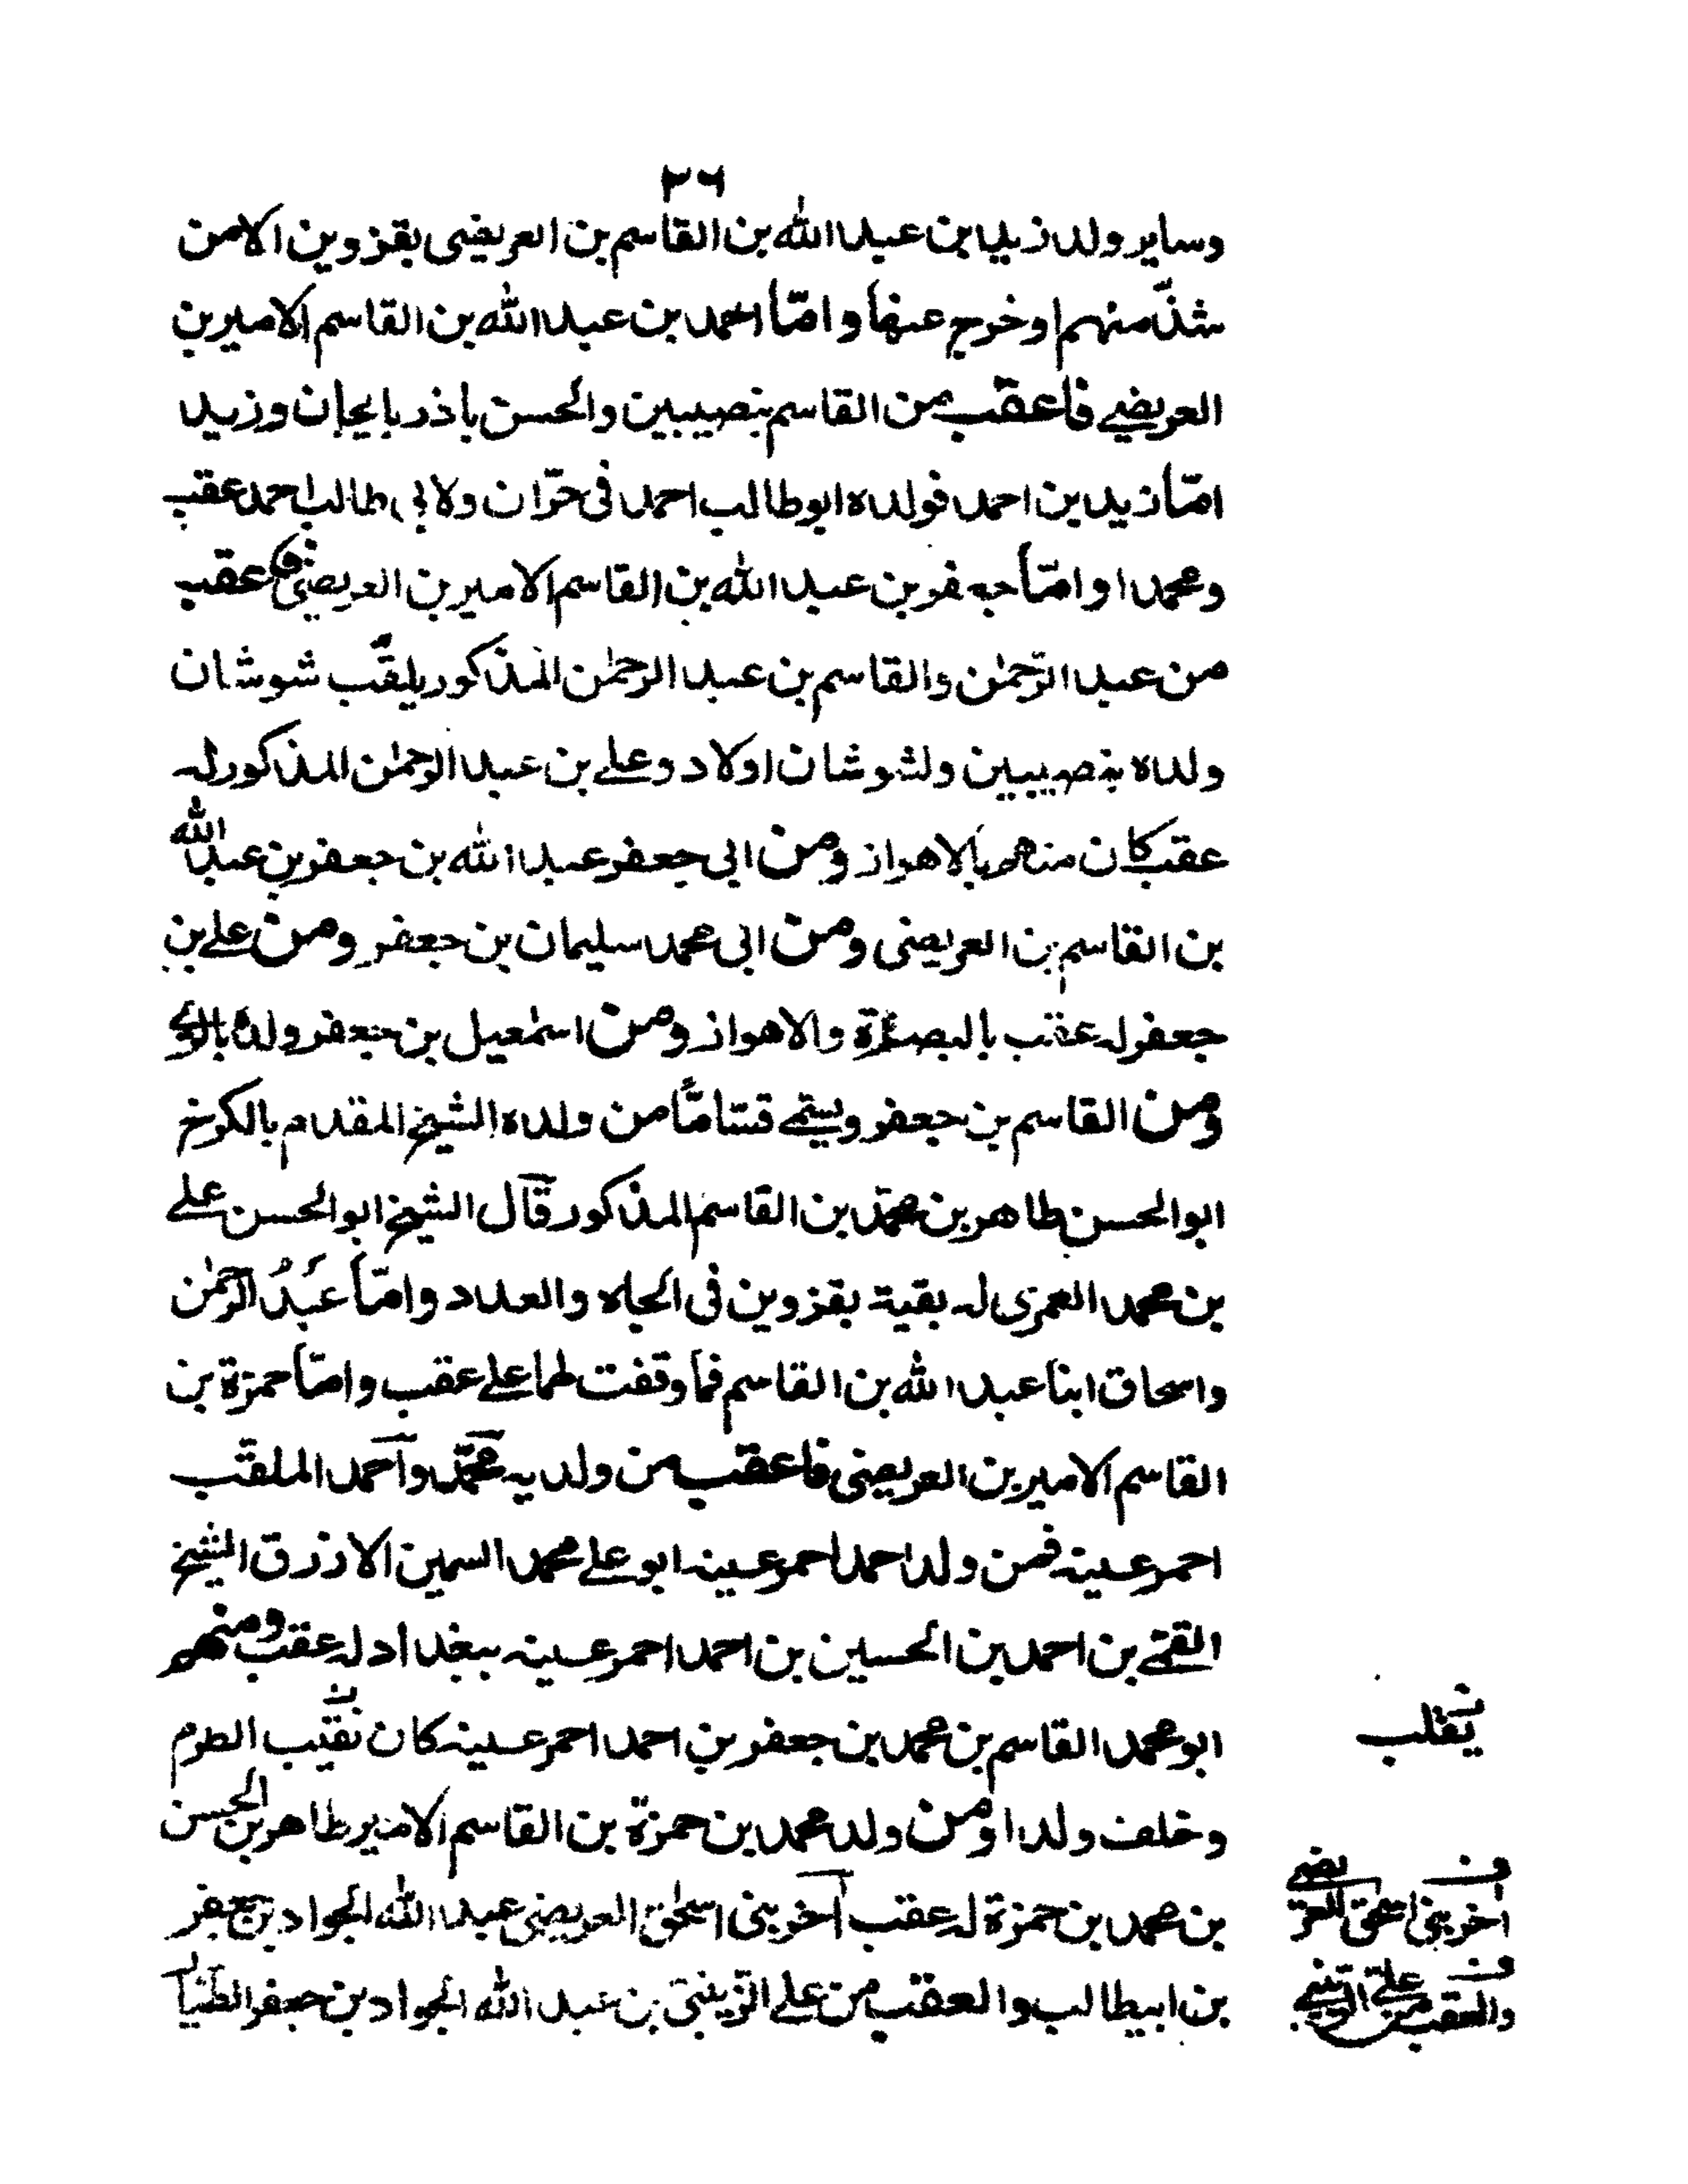 ٣٦
وساير ولد زيد بن عبد الله بن القاسم بن العريضى بقزوين الا من
شذّ منهم او خرج عنها وامّا احمد بن عبد الله بن القاسم الامير بن
العريضي فاعقب من القاسم بنصيبين والحسن باذربايجان وزيد
امّا زيد بن احمد فولده ابو طالب احمد فى حرّان ولابى طالب احمد عقب
ومحمد او امّا جعفر بن عبد الله بن القاسم الامير بن العريضى فاعقب
من عبد الرّحمٰن والقاسم بن عبد الرحمٰن المذكور يلقّب شوشان
ولده بنصيبين ولشوشان اولاد وعلي بن عبد الرحمٰن المذكور له
عقب كان منهم بالاهواز ومن ابى جعفر عبد الله بن جعفر بن عبد الله
بن القاسم بن العريضى ومن ابى محمد سليمان بن جعفر ومن علي بن
جعفر له عقب بالبصرة والاهواز ومن اسمٰعيل بن جعفر ولده
ومن القاسم بن جعفر ويسمّي قتتامّا من ولده الشيخ المقدم بالكرخ
ابو الحسن طاهر بن محمّد بن القاسم المذكور قال الشيخ ابو الحسن علي
بن محمد العمرى له بقية بقزوين فى الجاه والعدد وامّا عَبدُ الرّحمٰن
واسحاق ابنا عبد الله بن القاسم فما وقفت لهما علي عقب وامّا حمزة بن
القاسم الامير بن العريضى فاعقب من ولديه محمّد واحمد الملقّب
احمر عينه فمن ولد احمد احمر عينه ابو علي محمد السمين الازرق الشيخ
القمّي بن احمد بن الحسين بن احمد احمر عينه ببغداد له عقب ومنهم
ابو محمد القاسم بن محمد بن جعفر بن احمد احمر عينه كان نقيب الطرم
يقلب
وخلف ولدا ومن ولد محمد بن حمزة بن القاسم الامير طاهر بن الحسن
بن محمد بن حمزة له عقب آخر بنى اسحٰق العريضى عبد الله الجواد بن جعفر
آخر بنى اسحق العريضي
بن ابيطالب والعقب من علي الزّينبىّ بن عبد الله الجواد بن جعفر الطيّار
والعقب من علىّ الزينبي